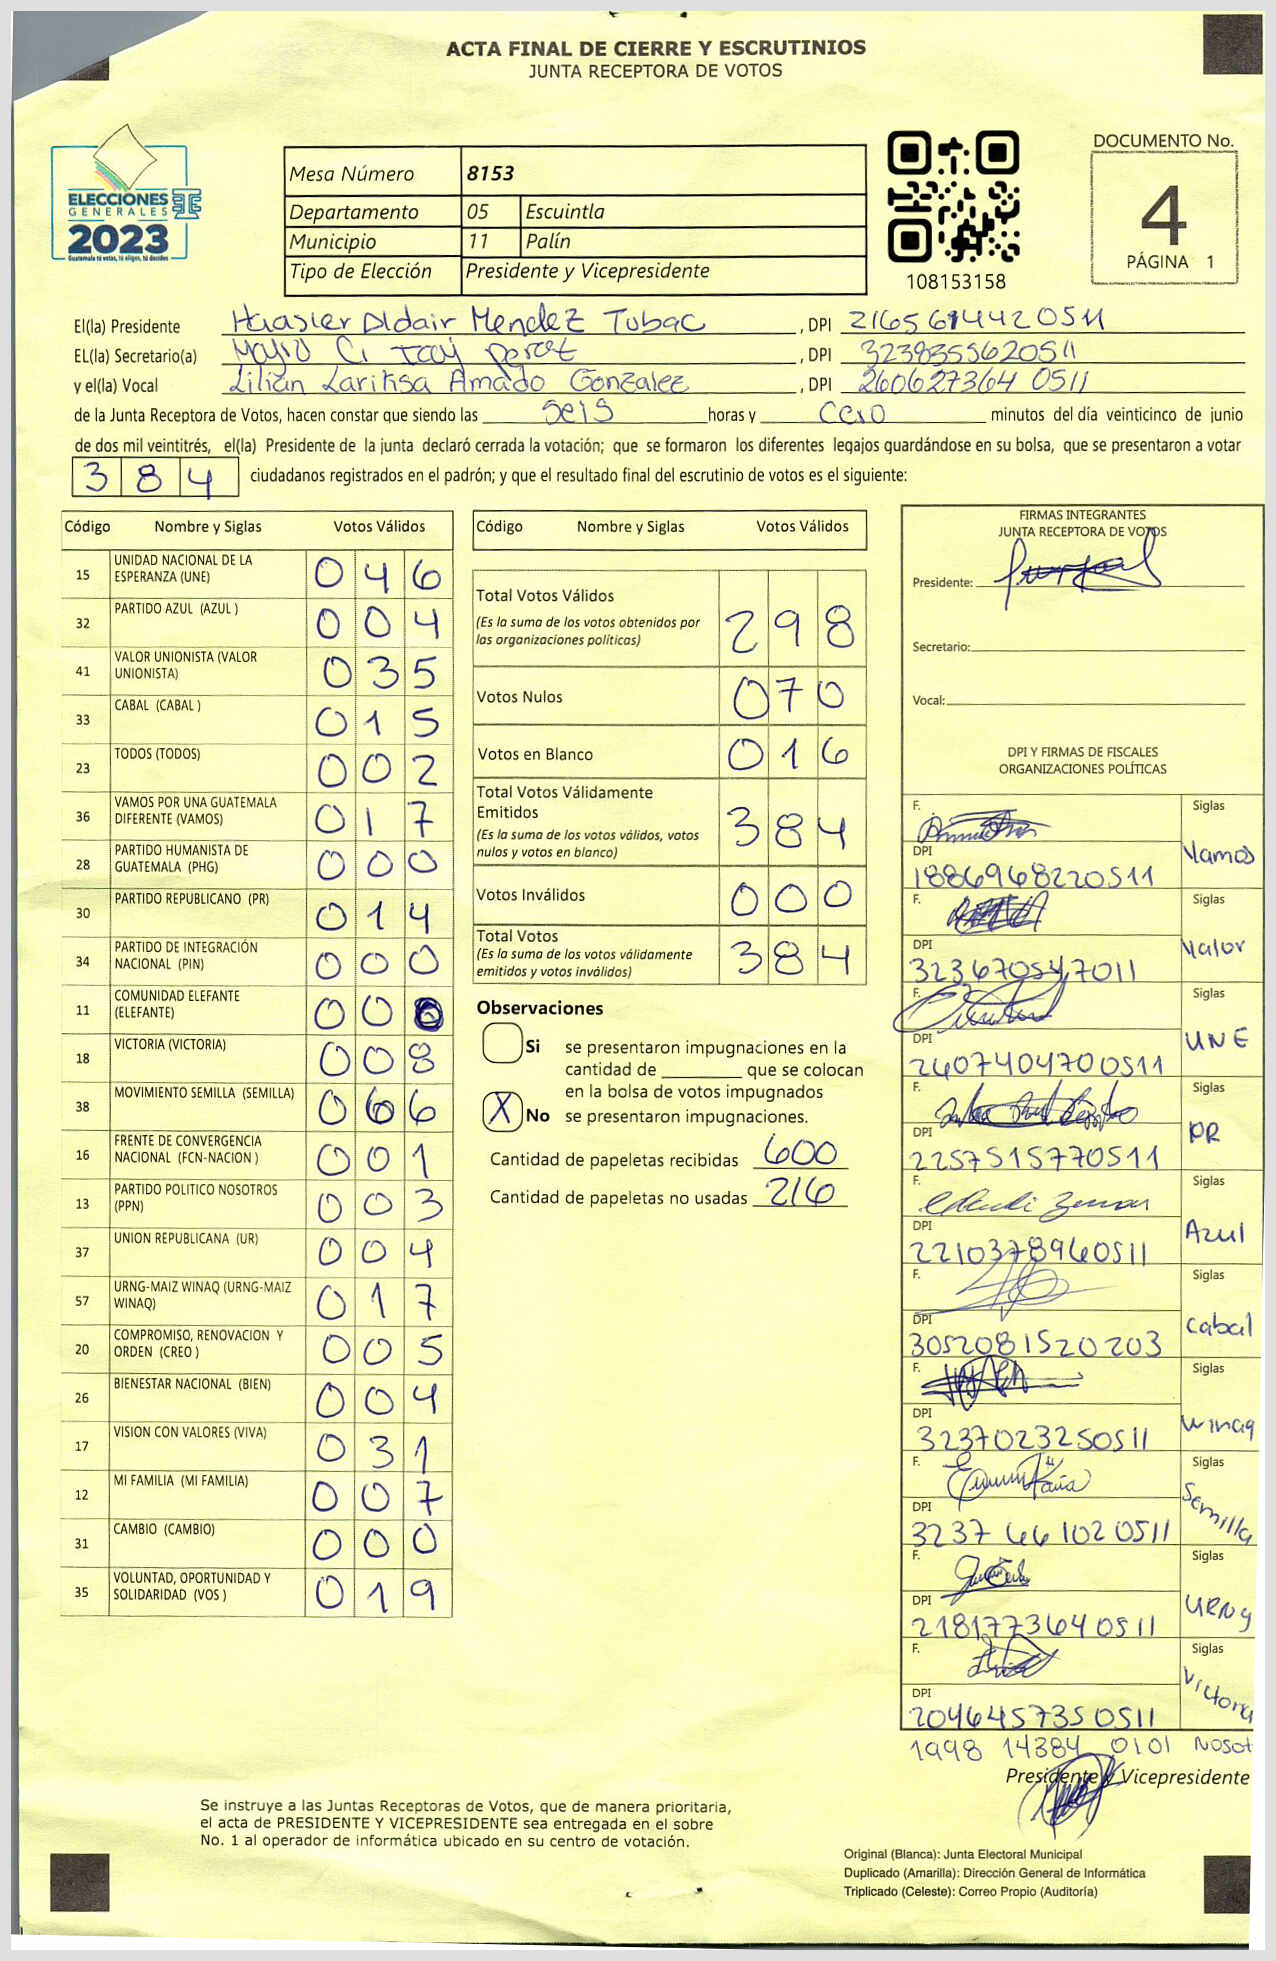 ACTA FINAL DE CIERRE Y ESCRUTINIOS
JUNTA RECEPTORA DE VOTOS
ELECCIONES
GENERALES
2023
Guatemala tú votas, tú eliges, tú decides
Mesa Número 8153
Departamento 05 Escuintla
Municipio 11 Palín
Tipo de Elección Presidente y Vicepresidente
108153158
DOCUMENTO No.
4
PÁGINA 1
El(la) Presidente Aldair Mendez Tubac, DPI
EL(la) Secretario(a) , DPI 3239355620511
y el(la) Vocal Lilian Laritsa Amado Gonzalez, DPI 260627364 0511
de la Junta Receptora de Votos, hacen constar que siendo las seis horas y cero minutos del día veinticinco de junio
de dos mil veintitrés, el(la) Presidente de la junta declaró cerrada la votación; que se formaron los diferentes legajos guardándose en su bolsa, que se presentaron a votar
384 ciudadanos registrados en el padrón; y que el resultado final del escrutinio de votos es el siguiente:
Código Nombre y Siglas Votos Válidos
15 UNIDAD NACIONAL DE LA ESPERANZA (UNE) 046
32 PARTIDO AZUL (AZUL ) 004
41 VALOR UNIONISTA (VALOR UNIONISTA) 035
33 CABAL (CABAL ) 015
23 TODOS (TODOS) 002
36 VAMOS POR UNA GUATEMALA DIFERENTE (VAMOS) 017
28 PARTIDO HUMANISTA DE GUATEMALA (PHG) 000
30 PARTIDO REPUBLICANO (PR) 014
34 PARTIDO DE INTEGRACIÓN NACIONAL (PIN) 000
11 COMUNIDAD ELEFANTE (ELEFANTE) 00
18 VICTORIA (VICTORIA) 008
38 MOVIMIENTO SEMILLA (SEMILLA) 066
16 FRENTE DE CONVERGENCIA NACIONAL (FCN-NACION ) 001
13 PARTIDO POLITICO NOSOTROS (PPN) 003
37 UNION REPUBLICANA (UR) 004
57 URNG-MAIZ WINAQ (URNG-MAIZ WINAQ) 017
20 COMPROMISO, RENOVACION Y ORDEN (CREO ) 005
26 BIENESTAR NACIONAL (BIEN) 004
17 VISION CON VALORES (VIVA) 031
12 MI FAMILIA (MI FAMILIA) 007
31 CAMBIO (CAMBIO) 000
35 VOLUNTAD, OPORTUNIDAD Y SOLIDARIDAD (VOS ) 019
Código Nombre y Siglas Votos Válidos
Total Votos Válidos 298
(Es la suma de los votos obtenidos por las organizaciones políticas)
Votos Nulos 070
Votos en Blanco 016
Total Votos Válidamente Emitidos 384
(Es la suma de los votos válidos, votos nulos y votos en blanco)
Votos Inválidos 000
Total Votos 384
(Es la suma de los votos válidamente emitidos y votos inválidos)
Observaciones
Si se presentaron impugnaciones en la
cantidad de ________ que se colocan
en la bolsa de votos impugnados
X No se presentaron impugnaciones.
Cantidad de papeletas recibidas 600
Cantidad de papeletas no usadas 216
FIRMAS INTEGRANTES
JUNTA RECEPTORA DE VOTOS
Presidente:
Secretario:
Vocal:
DPI Y FIRMAS DE FISCALES
ORGANIZACIONES POLÍTICAS
F. Siglas
DPI Vamos
1886968220511
F. Siglas
DPI Valor
F. Siglas
DPI UNE
2407404700511
F. Siglas
DPI PR
2257515770511
F. Siglas
DPI Azul
2210378960511
F. Siglas
DPI Cabal
3052081520203
F. Siglas
DPI Winaq
3237023250511
F. Siglas
DPI Semilla
3237 661020511
F. Siglas
DPI URNg
2181773640511
F. Siglas
DPI Victoria
2046457350511
1998 14384 0101 Nosot
Presidente y Vicepresidente
Se instruye a las Juntas Receptoras de Votos, que de manera prioritaria,
el acta de PRESIDENTE Y VICEPRESIDENTE sea entregada en el sobre
No. 1 al operador de informática ubicado en su centro de votación.
Original (Blanca): Junta Electoral Municipal
Duplicado (Amarilla): Dirección General de Informática
Triplicado (Celeste): Correo Propio (Auditoría)